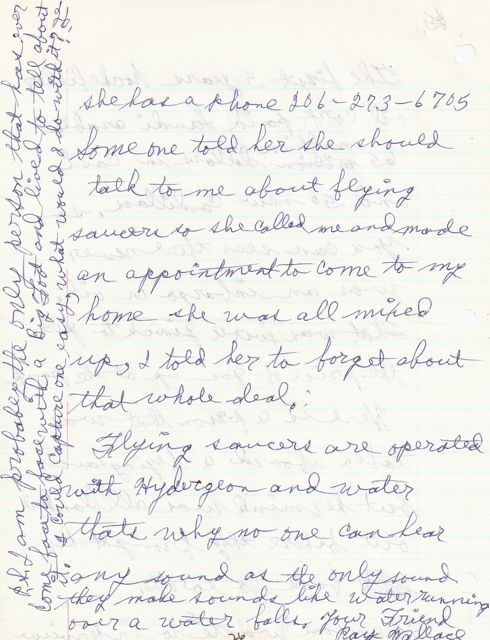 she has a phone 206-273-6705
Some one told her she should
talk to me about flying
saucers so she called me and made
an appointment to come to my
home she was all mixed
up, I told her to forget about
that whole deal.
Flying saucers are operated
with Hydergeon and water
thats why no one can hear
any sound as the only sound
they make sounds like water running
over a water falls. Your Friend
Ray Wallace
P.S. I am probabley the only person that has ever
come face to face with a Big Foot and lived to tell about
it. I could capture one easy, what would I do with it?